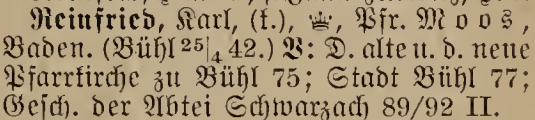 Reinfried, Karl, (k.), ♕, Pfr. Moos,
Baden. (Bühl 25|4 42.) V: D. alte u. d. neue
Pfarrkirche zu Bühl 75; Stadt Bühl 77;
Gesch. der Abtei Schwarzach 89/92 II.